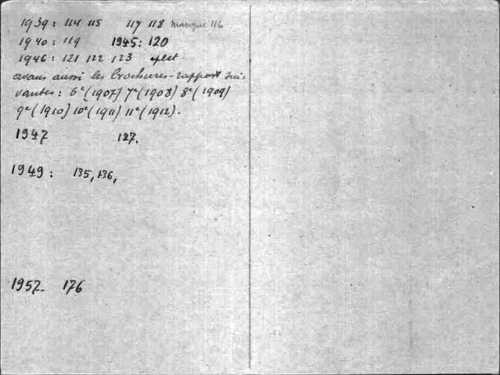 1939 : 114 115 117 118 manque 116
1940 : 119 1945 : 120
1946 : 121 122 123
avons aussi les brochures-rapport sui
vantes : 6e (1907) 7e (1908) 8e (1909)
9e (1910) 10e (1911) 11e (1912).
1947 127.
1949 : 135, 136,
1957 176